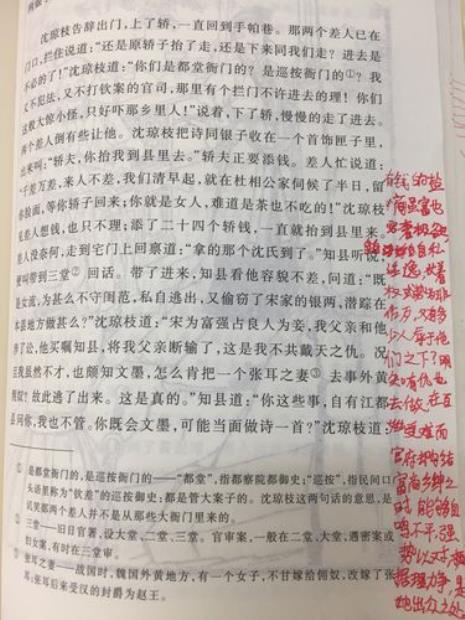 沈琼枝告辞出门,上了轿,一直回到手帕巷。那两个差人已在
门口,拦住说道:“还是原轿子抬了走,还是下来同我们走?进去是
不必的了!”沈琼枝道:“你们是都堂衙门的?是巡按衙门的①?我
又不犯法,又不打钦案的官司,那里有个拦门不许进去的理!你们
这般大惊小怪,只好吓那乡里人!”说着,下了轿,慢慢的走了进去。
两个差人倒有些让他。沈琼枝把诗同银子收在一个首饰匣子里,
出来叫:“轿夫,你抬我到县里去。”轿夫正要添钱。差人忙说道:
“千差万差,来人不差,我们清早起,就在杜相公家伺候了半日,留
你脸面,等你轿子回来;你就是女人,难道是茶也不吃的!”沈琼枝
见差人想钱,也只不理;添了二十四个轿钱,一直就抬到县里来。
差人没奈何,走到宅门上回禀道:“拿的那个沈氏到了。”知县听说,
便叫带到三堂②回话。带了进来,知县看他容貌不差,问道:“既
是女流,为甚么不守闺范,私自逃出,又偷窃了宋家的银两,潜踪在
本县地方做甚么?”沈琼枝道:“宋为富强占良人为妾,我父亲和他
涉了讼,他买嘱知县,将我父亲断输了,这是我不共戴天之仇。况
且我虽然不才,也颇知文墨,怎么肯把一个张耳之妻③去事外黄
佣奴?故此逃了出来。这是真的。”知县道:“你这些事,自有江都
县问你,我也不管。你既会文墨,可能当面做诗一首?”沈琼枝道:
① 是都堂衙门的,是巡按衙门的——“都堂”,指都察院都御史;“巡按”,指民间口
头语里称为“钦差”的巡按御史:都是管大案子的。沈琼枝这两句话的意思,是
讥笑那两个差人并不是从那些大衙门里来的。
② 三堂——旧日官署,设大堂、二堂、三堂。官审案,一般在二堂、大堂,遇密案或
妇女案,有时在三堂审。
③ 张耳之妻——战国时,魏国外黄地方,有一个女子,不甘嫁给佣奴,改嫁了张
耳;张耳后来受汉的封爵为赵王。
有钱的盐
商宋为富也
权或势为非
作歹,只有多
少人辱于他
们之下?明
知有仇也
去做,在互
受难而
官府却勾结
富商乡绅之
时,能够鸣
鸣不平,强
势以对,
据理力争,是
她出众之处